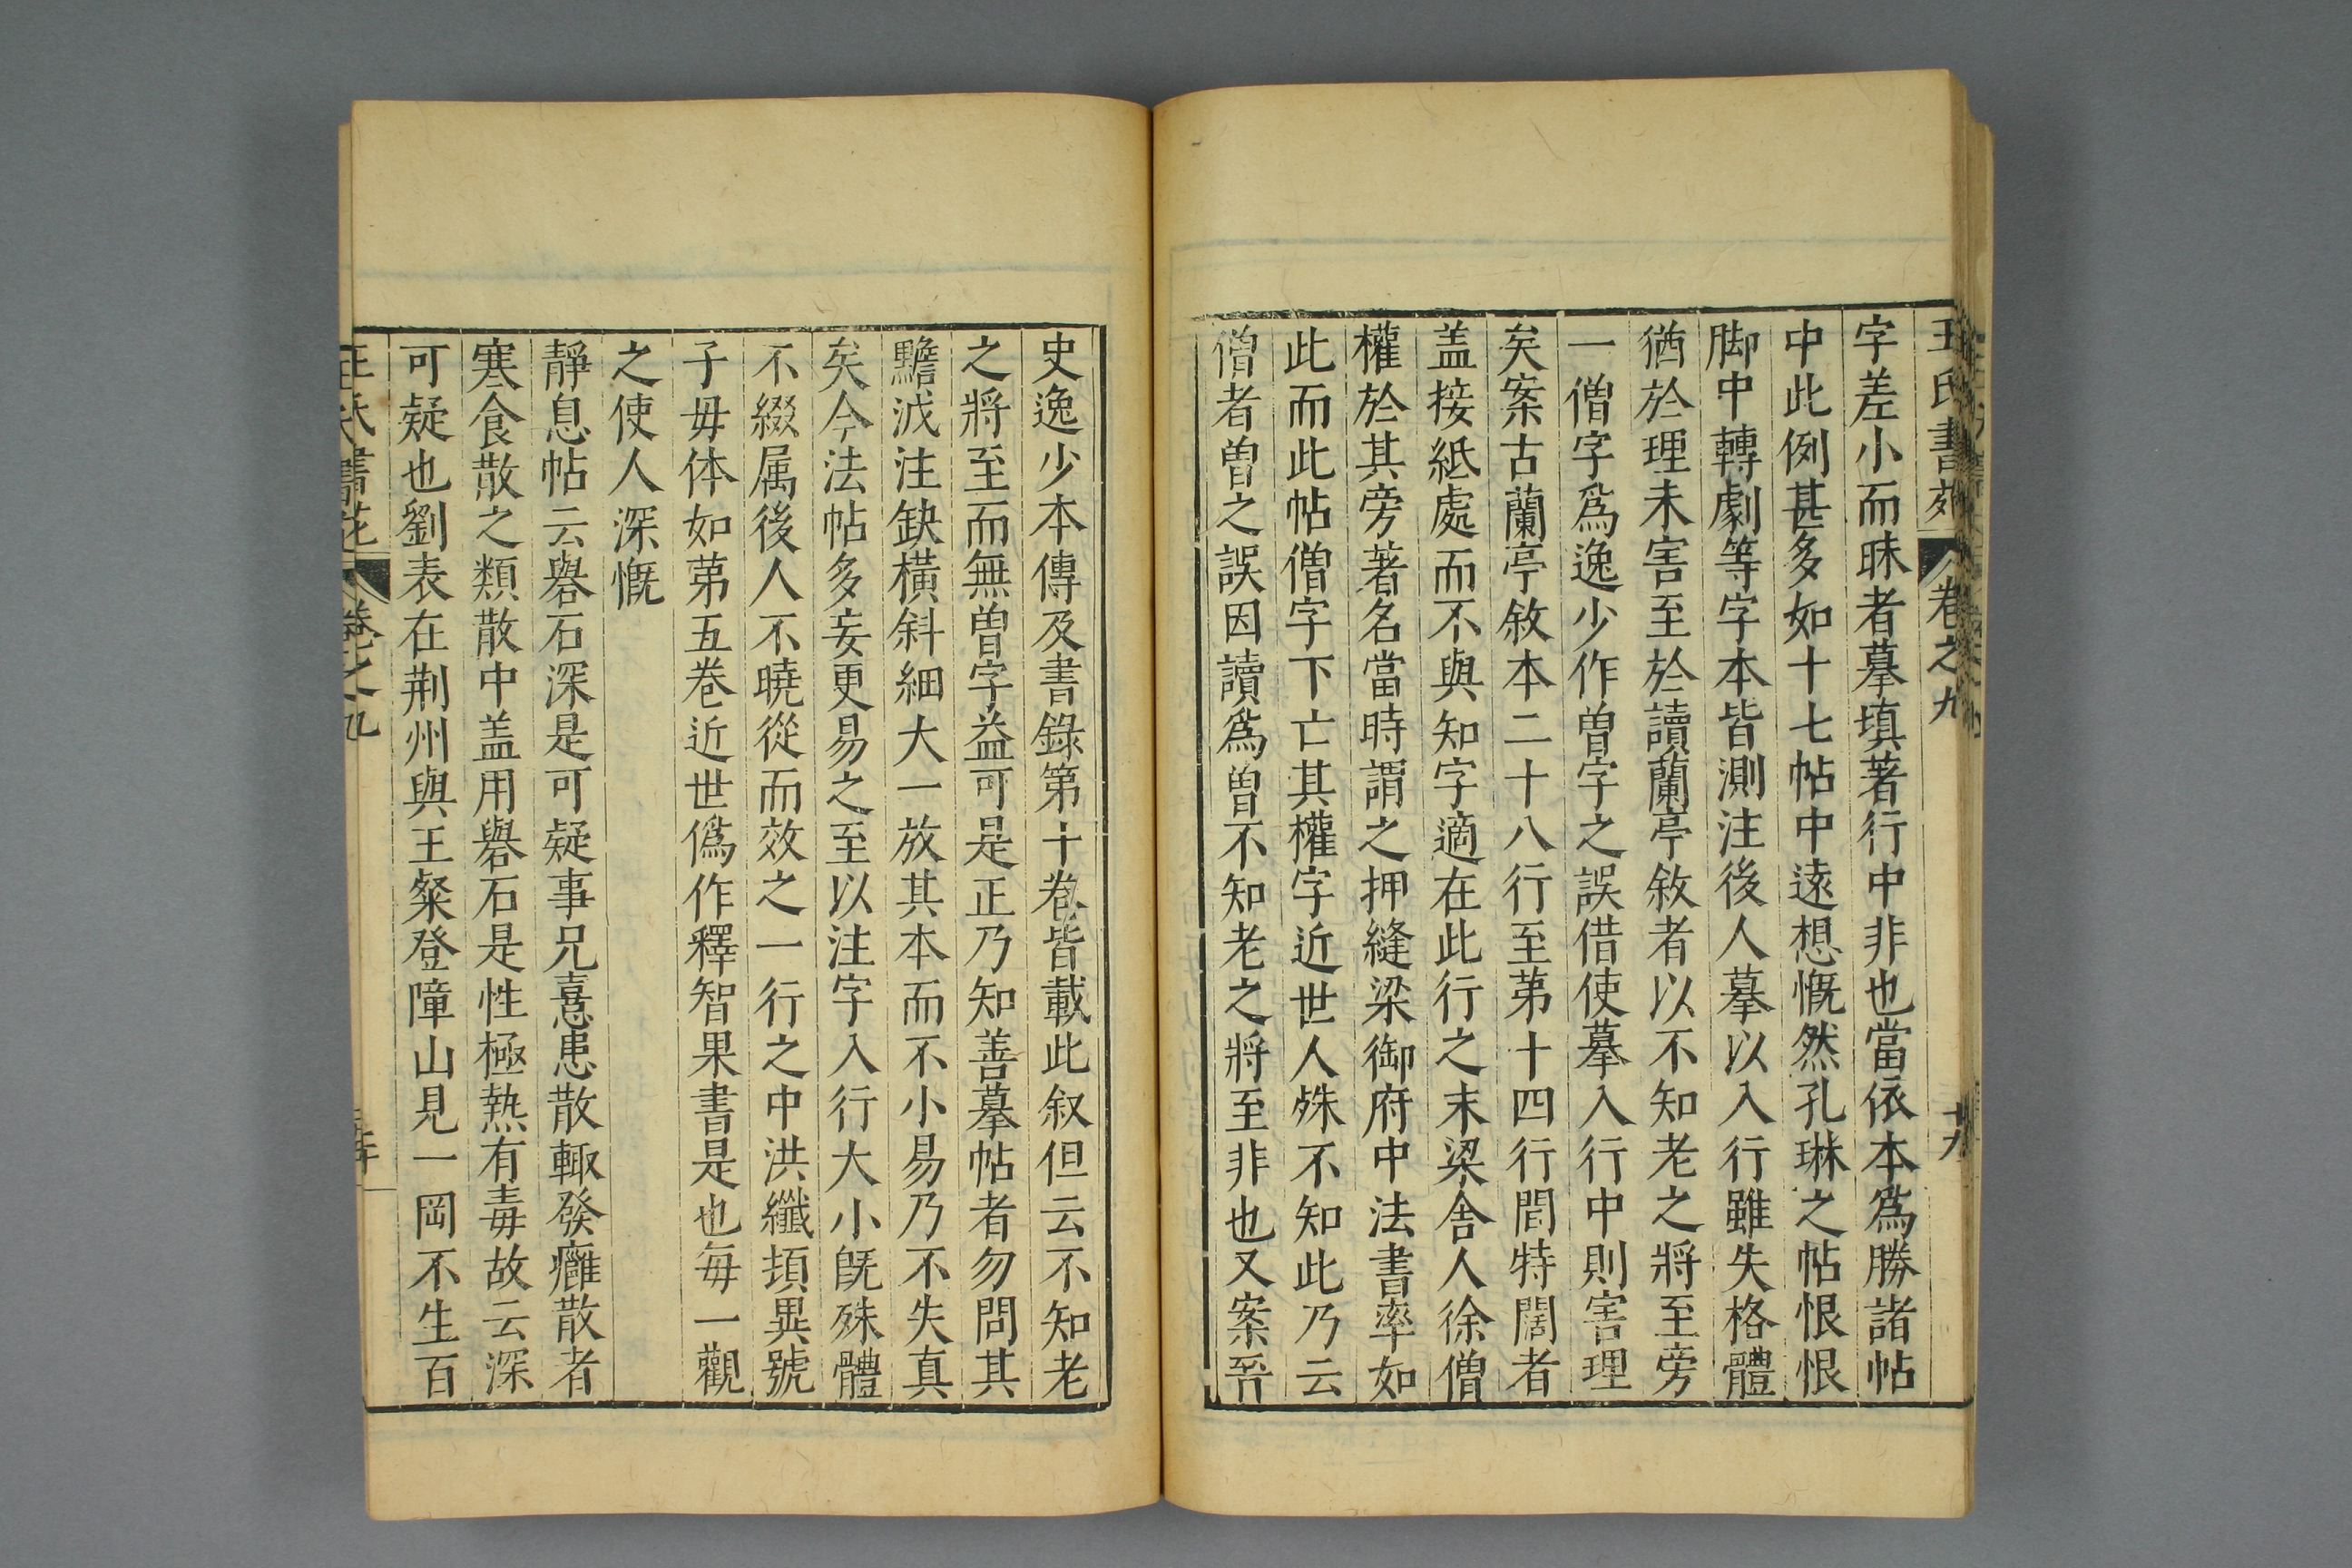 王氏書苑 卷之九 十九
字差小而昧者摹填著行中非也當依本爲勝諸帖
中此例甚多如十七帖中遠想慨然孔琳之帖恨恨
脚中轉劇等字本皆測注後人摹以入行雖失格體
猶於理未害至於讀蘭亭敘者以不知老之將至旁
一僧字爲逸少作曽字之誤借使摹入行中則害理
矣案古蘭亭敘本二十八行至苐十四行間特闊者
盖接紙處而不與知字適在此行之末梁舍人徐僧
權於其旁著名當時謂之押縫梁御府中法書率如
此而此帖僧字下亡其權字近世人殊不知此乃云
僧者曽之誤因讀爲曽不知老之將至非也又案晉
史逸少本傳及書錄第十卷皆載此叙但云不知老
之將至而無曽字益可是正乃知善摹帖者勿問其
黵滅注缺橫斜細大一放其本而不小易乃不失真
矣今法帖多妄更易之至以注字入行大小旣殊體
不綴属後人不曉從而效之一行之中洪纖頓異號
子毋体如苐五卷近世僞作釋智果書是也每一觀
之使人深慨
靜息帖云礜石深是可疑事兄憙患散輙發癰散者
寒食散之類散中盖用礜石是性極熱有毒故云深
可疑也劉表在荆州與王粲登障山見一岡不生百
王氏書苑 卷之九